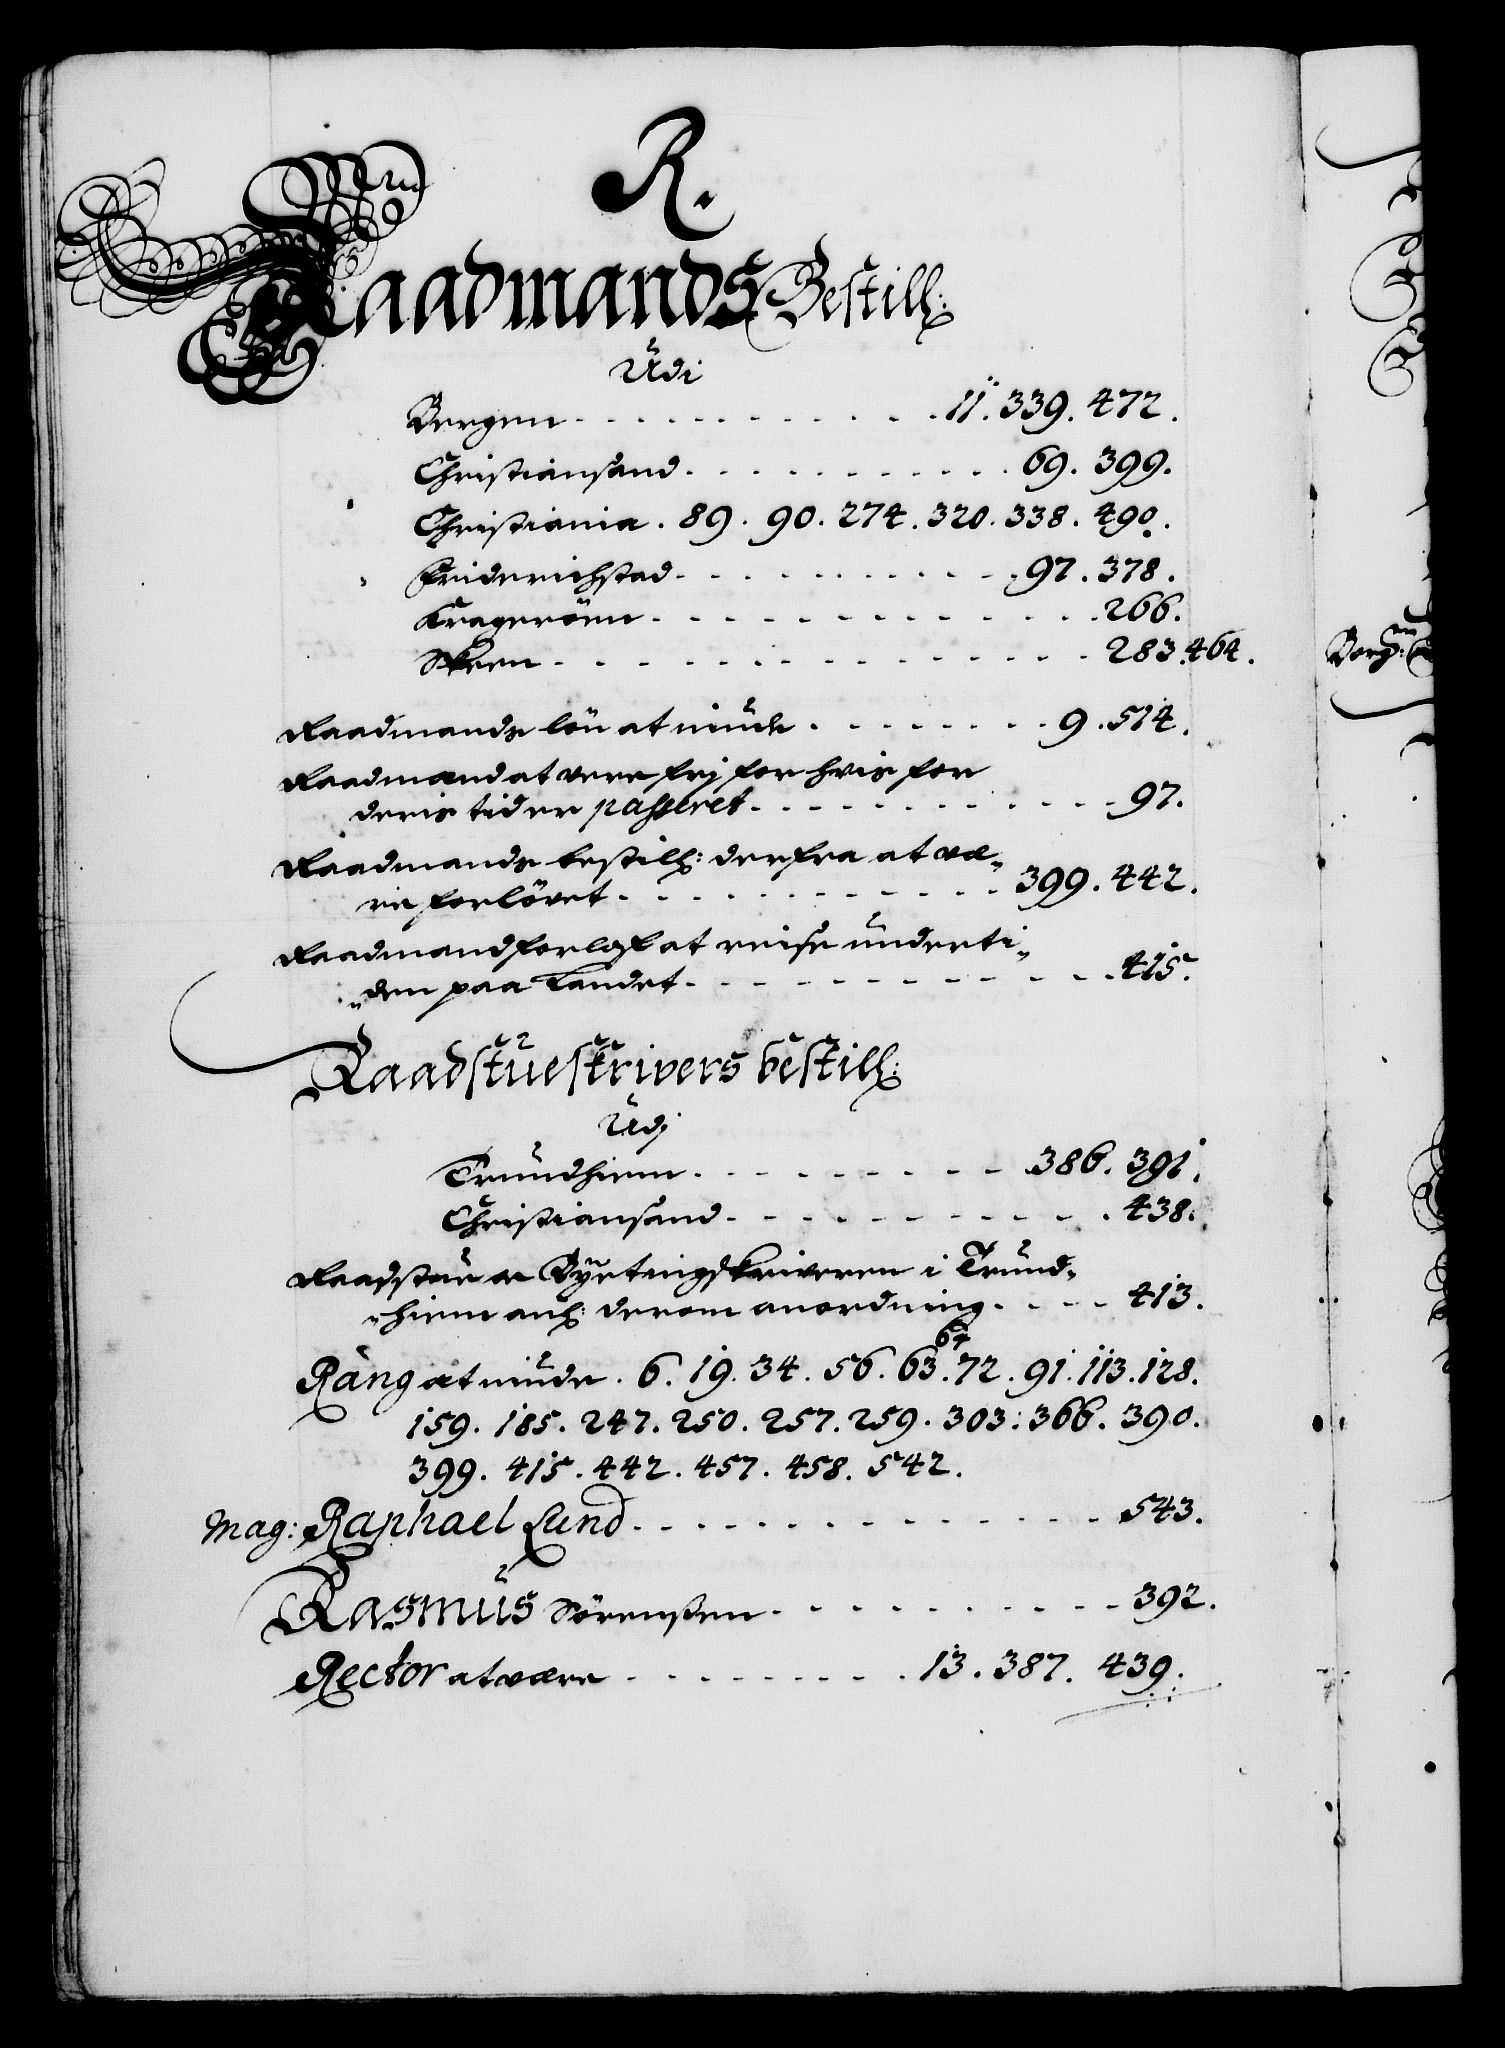 R.
Raadmands Bestill:
Udi
Bergen. 11. 339. 472.
Christiansand. 69. 399.
Christiania. 89. 90. 274. 320. 338. 490.
Friderichstad. 97. 378.
Krageröen. 266.
Skeen. 283. 464.
Raadmands lön at niude. 9. 514.
Raadmand at vere frj for hvis for
deris tider passeret. 97.
Raadmands bestill: derfra at væ„
re forlövet. 399. 442.
Raadmand forloft at reise underti„
„den paa Landet. 415.
Raadstueskrivers bestill:
Udj
Trundhiem. 386. 391.
Christiansand. 438.
Raadstue oc Byetingskriveren i Trund„
„hiem anl: derom anordning. 413.
Rang at niude. 6. 19. 34. 56. 63. 64 72. 91. 113. 128.
159. 185. 247. 250. 257. 259. 303. 366. 390.
399. 415. 442. 457. 458. 542.
Mag: Raphael Lund. 543.
Rasmus Sörensen. 392.
Rector at være. 13. 387. 439.